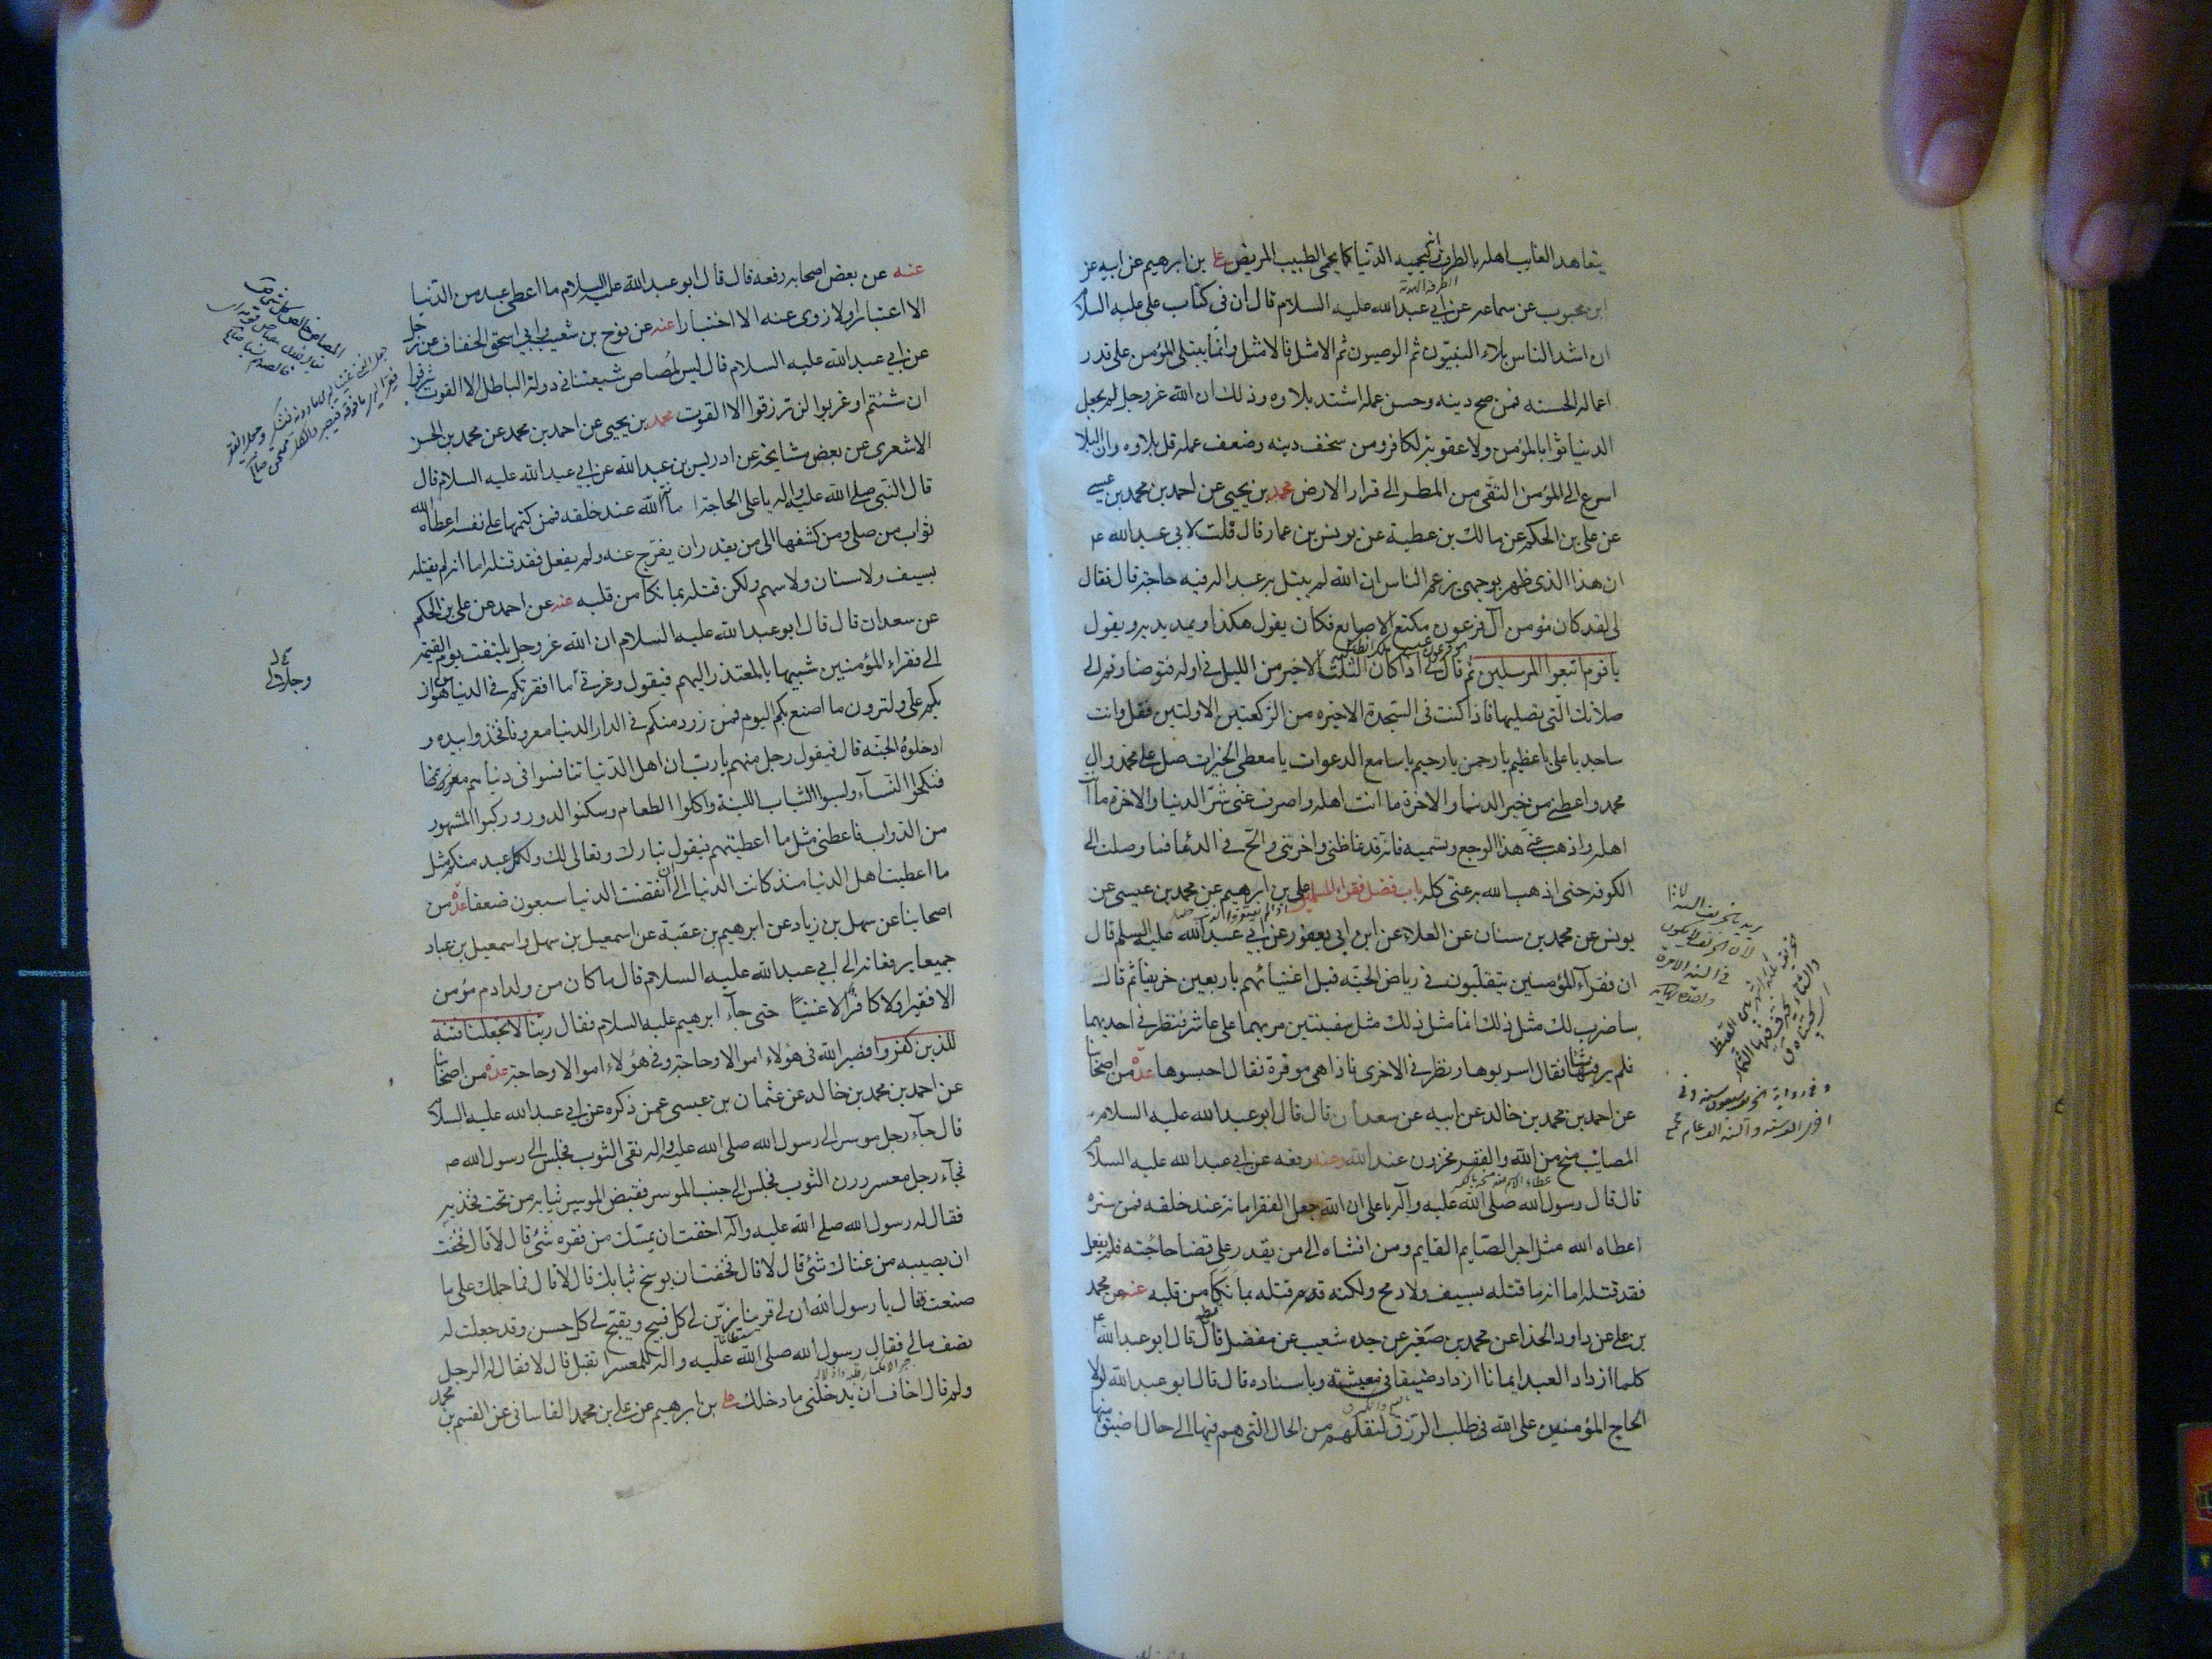 يتعاهد الغايب اهله بالطرف وانه ليحميه الدنيا كما يحمى الطبيب المريض على بن ابرهيم عن ابيه عن
ابن محبوب عن سماعه عن ابي عبدالله عليه السلام قال ان فى كتاب على عليه السلام
ان اشد الناس بلاء النبيّون ثم الوصيون ثم الامثل فالامثل وانما يبتلى المؤمن على قدر
اعماله الحسنه فمن صح دينه وحسن عمله اشتد بلاوه وذلك ان الله عز وجل لم يجعل
الدنيا ثوابا لمؤمن ولا عقوبة لكافر ومن سخف دينه وضعف عمله قل بلاوه وان البلا
اسرع الى المؤمن التقى من المطر الى قرار الارض محمد بن يحيى عن احمد بن محمد بن عيسى
عن على بن الحكم عن مالك بن عطية عن يونس بن عمار قال قلت لابي عبدالله ع
ان هذا الذى ظهر بوجهى يزعم الناس ان الله لم يبتل به عبدا له فيه حاجة قال فقال
لى لقد كان مؤمن آل فرعون مكنع الاصابع فكان يقول هكذا ويمد يديه ويقول
يا قوم اتبعوا المرسلين ثم قال لى اذا كان الثلث الاخير من الليل فى اوله فتوضا وقم الى
صلاتك التى تصليها فاذا كنت فى السجدة الاخيره من الركعتين الاولتين فقل وانت
ساجد يا على يا عظيم يا رحمن يا رحيم يا سامع الدعوات يا معطى الخيرات صل على محمد وال
محمد واعطنى من خير الدنيا والاخرة ما انت اهله واصرف عنى شر الدنيا والاخرة ما انت
اهله واذهب عنى هذا الوجع وتسميه فانه قد غاظنى واحزننى والح فى الدعا فما وصلت الى
الكوفه حتى اذهب الله به عنى كله باب فضل فقراء المسلمين على بن ابرهيم عن محمد بن عيسى عن
يونس عن محمد بن سنان عن العلاء عن ابن ابى يعفور عن ابي عبدالله عليه السلم قال
ان فقرآء المؤمنين يتقلبون فى رياض الجنة قبل اغنيائهم باربعين خريفا ثم قال
ساضرب لك مثل ذلك انما مثل ذلك مثل سفينتين مر بهما على عاشر فنظر فى احديهما
فلم ير فيها شيئا فقال اسربوها ونظر فى الاخرى فاذا هى موقرة فقال احبسوها عدة من اصحابنا
عن احمد بن محمد بن خالد عن ابيه عن سعدان قال قال ابوعبدالله عليه السلام
المصايب منح من الله والفقر مخزون عند الله وعنه رفعه عن ابى عبدالله عليه السلام
قال قال رسول الله صلى الله عليه وآله يا على ان الله جعل الفقر امانة عند خلقه فمن ستره
اعطاه الله مثل اجر الصايم القايم ومن افشاه الى من يقدر على قضا حاجته فلم يفعل
فقد قتله اما انه ما قتله بسيف ولا رمح ولكنه قتله بما نكا من قلبه عنه عن محمد
بن على عن داود الحذا عن محمد بن صغير عن جده شعيب عن مفضل قال قال ابوعبدالله ع
كلما ازداد العبد ايمانا ازداد ضيقا فى معيشته وباسناده قال قال ابوعبدالله لولا
الحاح المؤمنين على الله فى طلب الرزق لنقلهم من الحال التى هم فيها الى حال اضيق منها
عنه عن بعض اصحابه رفعه قال قال ابوعبدالله عليه السلام ما اعطى عبد من الدنيا
الا اعتبارا ولا زوى عنه الا اختبارا عنه عن نوح بن شعيب وابي اسحق الخفاف عن رجل
عن ابي عبدالله عليه السلام قال ليس لمصاص شيعتنا فى دولة الباطل الا القوت شرقوا
ان شئتم او غربوا لن ترزقوا الا القوت محمد بن يحيى عن احمد بن محمد عن محمد بن الحسن
الاشعرى عن بعض مشايخه عن ادريس بن عبدالله عن ابي عبدالله عليه السلام قال
قال النبى صلى الله عليه واله يا على الحاجة امانة الله عند خلقه فمن كتمها على نفسه اعطاه الله
ثواب من صلى ومن كشفها الى من يقدر ان يفرج عنه ولم يفعل فقد قتله اما انه لم يقتله
بسيف ولا سنان ولا سهم ولكن قتله بما نكا من قلبه عنه عن احمد عن على بن الحكم
عن سعدان قال قال ابوعبدالله عليه السلام ان الله عز وجل يلتفت يوم القيمة
الى فقراء المؤمنين شبيها بالمعتذر اليهم فيقول وعزتى ما افقرتكم فى الدنيا من هوان
بكم على ولترون ما اصنع بكم اليوم فمن زود منكم فى الدار الدنيا معروفا فخذوا بيده و
ادخلوه الجنة قال فيقول رجل منهم يا رب ان اهل الدنيا تنافسوا فى دنياهم
فنكحوا النسآء ولبسوا الثياب اللينة واكلوا الطعام وسكنوا الدور وركبوا المشهور
من الدواب فاعطنى مثل ما اعطيتهم فيقول تبارك وتعالى لك ولكل عبد منكم مثل
ما اعطيت اهل الدنيا منذ كانت الدنيا الى ان انقضت الدنيا سبعون ضعفا عدة من
اصحابنا عن سهل بن زياد عن ابرهيم بن عقبة عن اسمعيل بن سهل واسمعيل بن عباد
جميعا يرفعانه الى ابي عبدالله عليه السلام قال ما كان من ولد ادم مؤمن
الا فقيرا ولا كافر الا غنيّا حتى جآء ابرهيم عليه السلام فقال ربنا لا تجعلنا فتنة
للذين كفروا فصير الله فى هؤلاء اموالا وحاجة وفى هؤلاء اموالا وحاجة عدة من اصحابنا
عن احمد بن محمد بن خالد عن عثمان بن عيسى عمن ذكره عن ابي عبدالله عليه السلام
قال جآء رجل موسر الى رسول الله صلى الله عليه واله نقى الثوب فجلس الى رسول الله ص
فجآء رجل معسر درن الثوب فجلس الى جنب الموسر فقبض الموسر ثيابه من تحت فخذيه
فقال له رسول الله صلى الله عليه وآله اخفت ان يمسّك من فقره شئ قال لا قال فخفت
ان يصيبه من غناك شئ قال لا قال فخفت ان يوسخ ثيابك قال لا قال فما حملك على ما
صنعت فقال يا رسول الله ان لى قرينا يزيّن لى كل قبيح ويقبّح لى كل حسن وقد جعلت له
نصف مالى فقال رسول الله صلى الله عليه واله للمعسر اتقبل قال لا فقال له الرجل
ولم قال اخاف ان يدخلنى ما دخلك على بن ابرهيم عن على بن محمد القاسانى عن القسم بن محمد